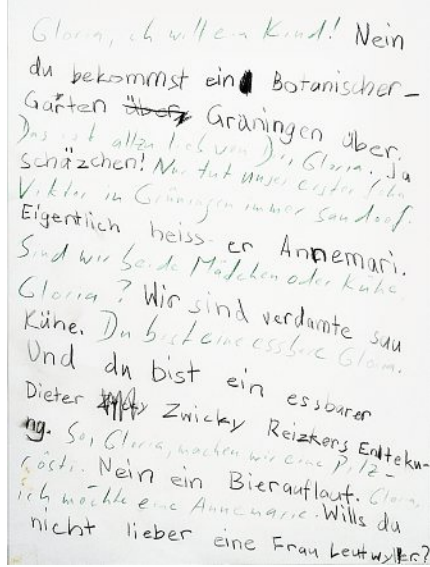 Gloria, ich will ein Kind! Nein
du bekommst ein Botanischer-
Garten über Grüningen über
Das ist allzu lieb von Dir, Gloria. ja
schäzchen! Nur tut unser erster Sohn
Viktor in Grüningen immer so doof.
Eigentlich heiss er Annemari.
Sind wir beide Mädchen oder Kühe,
Gloria? Wir sind verdamte sau
Kühe. Du bist eine essbare Gloria.
Und du bist ein essbarer
Dieter Zwicky Reizkers Enlteku-
ng. So, Gloria, machen wir eine Pilz-
rösti. Nein ein Bierauflauf. Gloria,
ich möchte eine Annemarie. Wills du
nicht lieber eine Frau Leutwyler?